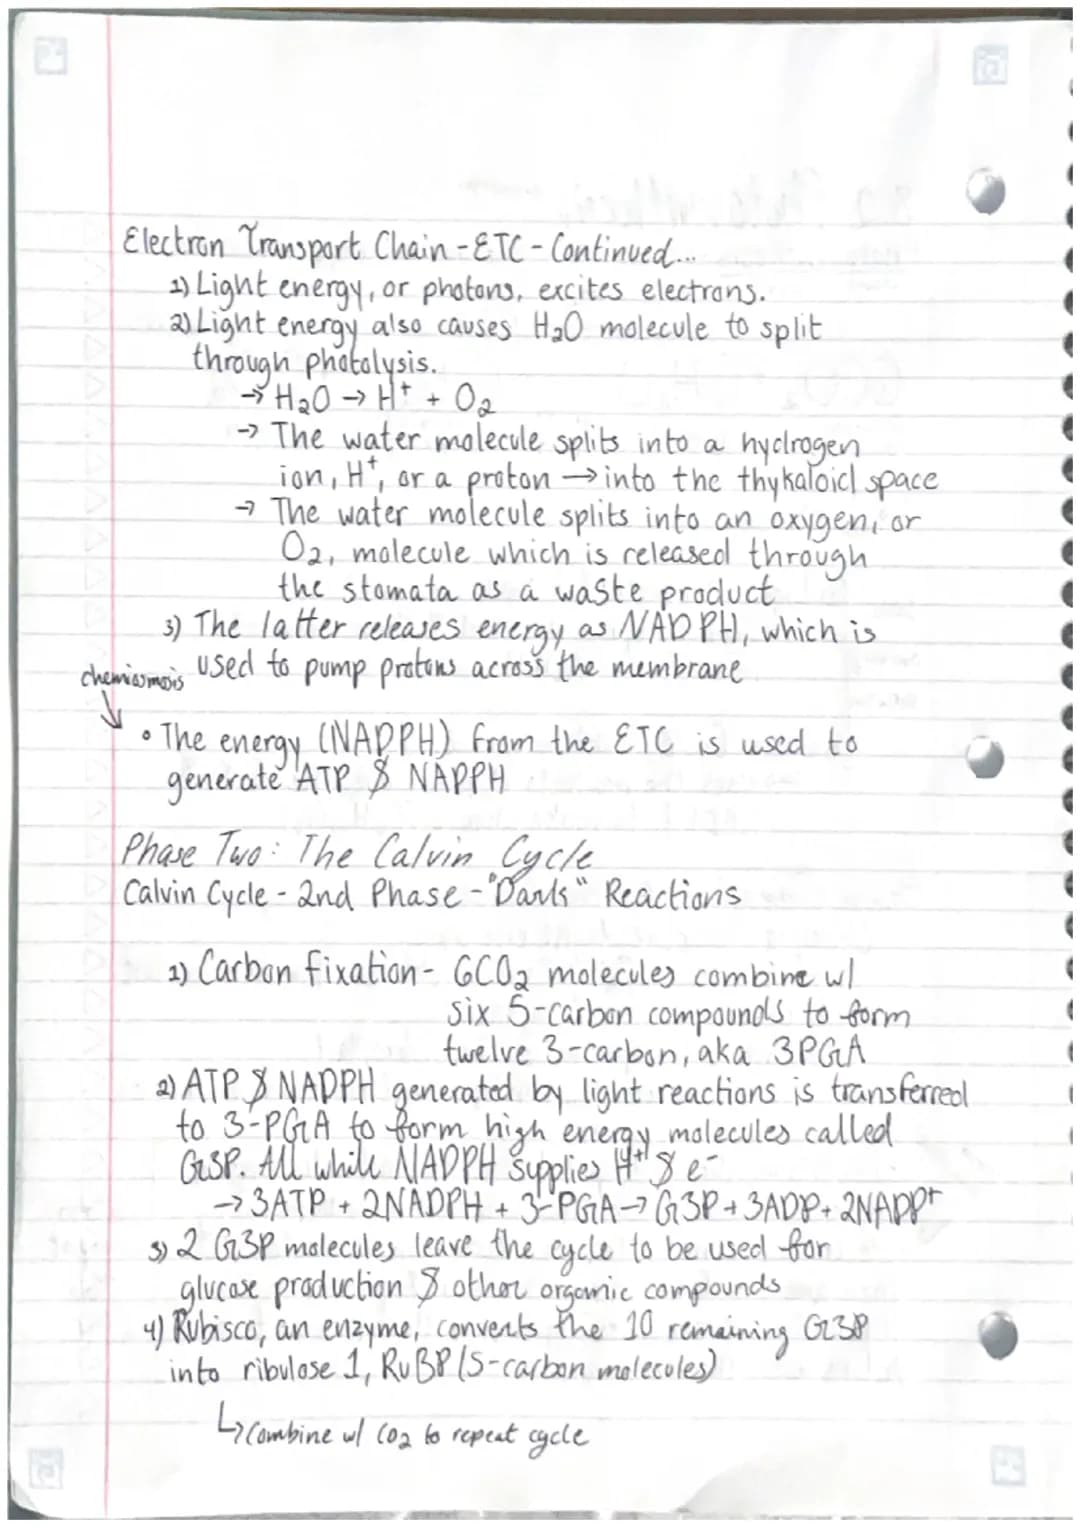 Electron Transport Chain - ETC - Continued...
1) Light energy, or photons, excites electrons.
2) Light energy also causes H2O molecule to split
through photolysis.
→ H2O → H+ + O2
→ The water molecule splits into a hydrogen
ion, H+, or a proton → into the thykaloid space
→ The water molecule splits into an oxygen, or
O2, molecule which is released through
the stomata as a waste product
3) The latter releases energy as NADPH, which is
used to pump protons across the membrane
chemiosmosis
↓
• The energy (NADPH) from the ETC is used to
generate ATP & NADPH
Phase Two: The Calvin Cycle
Calvin Cycle - 2nd Phase - "Dark" Reactions
1) Carbon fixation - 6CO2 molecules combine w/
six 5-carbon compounds to form
twelve 3-carbon, aka 3PGA
2) ATP & NADPH generated by light reactions is transferred
to 3-PGA to form high energy molecules called
G3P. All while NADPH supplies H+ & e-
→ 3ATP + 2NADPH + 3-PGA → G3P + 3ADP + 2NADP+
3) 2 G3P molecules leave the cycle to be used for
glucose production & other organic compounds
4) Rubisco, an enzyme, converts the 10 remaining G3P
into ribulose 1, RuBP (5-carbon molecules)
↳ combine w/ CO2 to repeat cycle